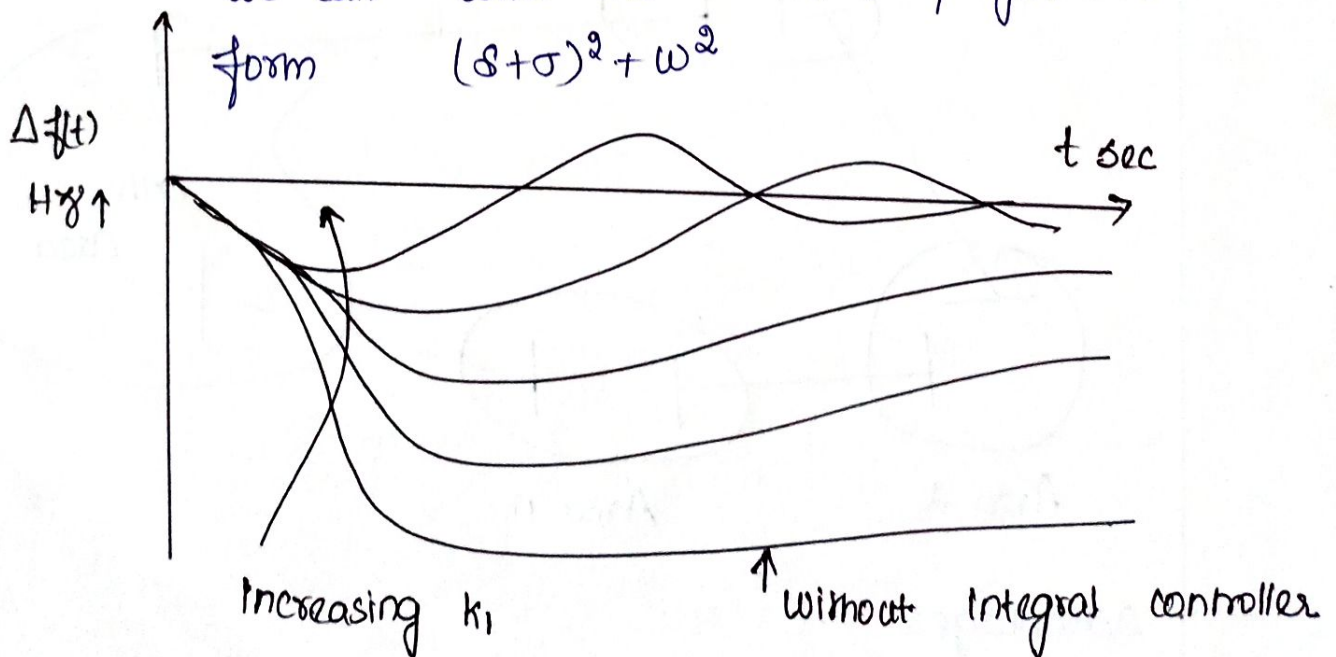 form (s+σ)² + ω²
Δf(t)
Hz ↑
t sec
Increasing K₁
without Integral controller